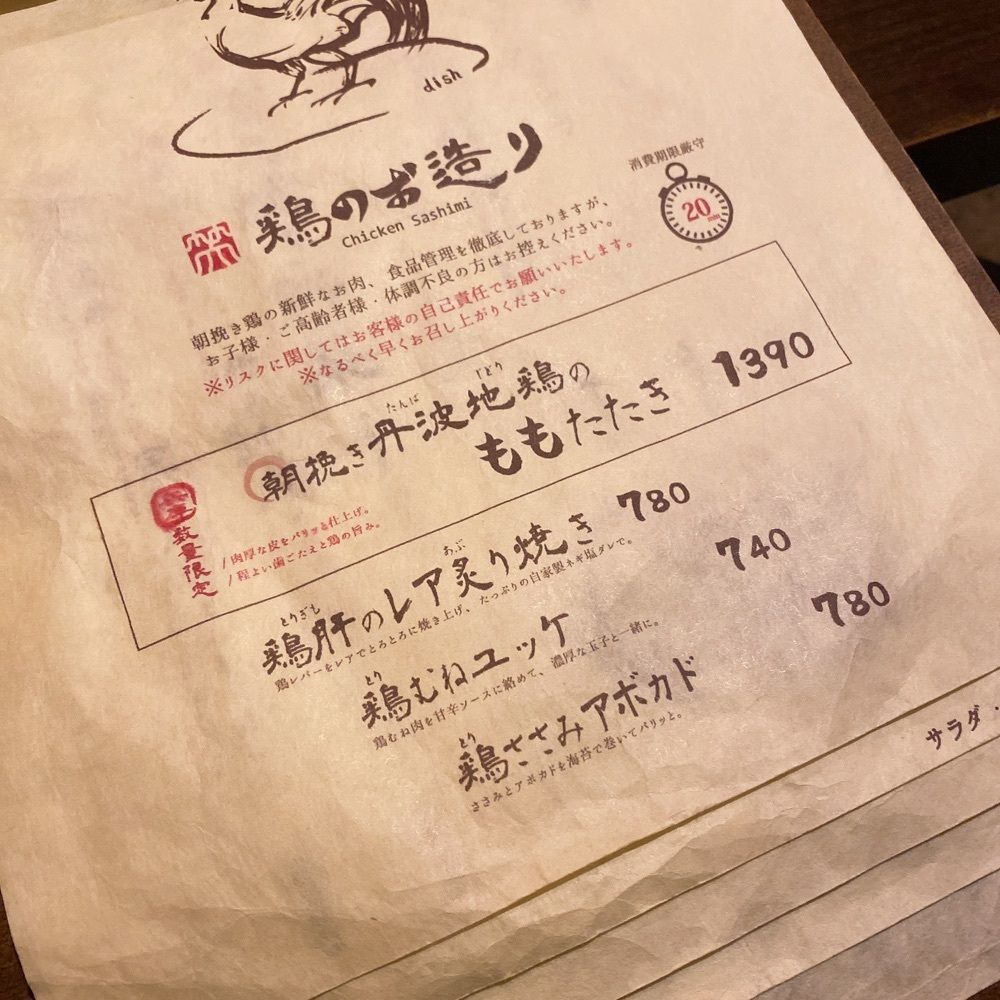 dish
鶏のお造り
Chicken Sashimi
消費期限厳守
20
朝挽き鶏の新鮮なお肉、食品管理を徹底しておりますが、
お子様・ご高齢者様・体調不良の方はお控えください。
※リスクに関してはお客様の自己責任でお願いいたします。
※なるべく早くお召し上がりください。
数量限定
朝挽き丹波地鶏の
たんば
じどり
ももたたき 1390
/肉厚な皮をパリッと仕上げ。
/程よい歯ごたえと鶏の旨み。
とりぎも
あぶ
鶏肝のレア炙り焼き 780
鶏レバーをレアでとろとろに焼き上げ、たっぷりの自家製ネギ塩ダレで。
とり
鶏むねユッケ 740
鶏むね肉を甘辛ソースに絡めて、濃厚な玉子と一緒に。
とり
鶏ささみアボカド 780
ささみとアボカドを海苔で巻いてパリッと。
サラダ・